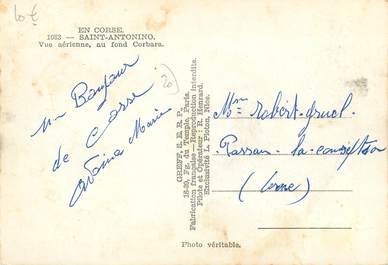 10 €
EN CORSE.
1083 — SAINT-ANTONINO.
Vue aérienne, au fond Corbara.
un Bonjour
de Corse
Marie
20
GREFF, S. E. R. P.,
18-20, Fg. du Temple, Paris.
Fabrication française - Reproduction interdite.
Pilote et Opérateur : R. Henrard.
Exclusivité L. Ploton, Nice.
Mme Robert
Passais la conception
(orne)
Photo véritable.